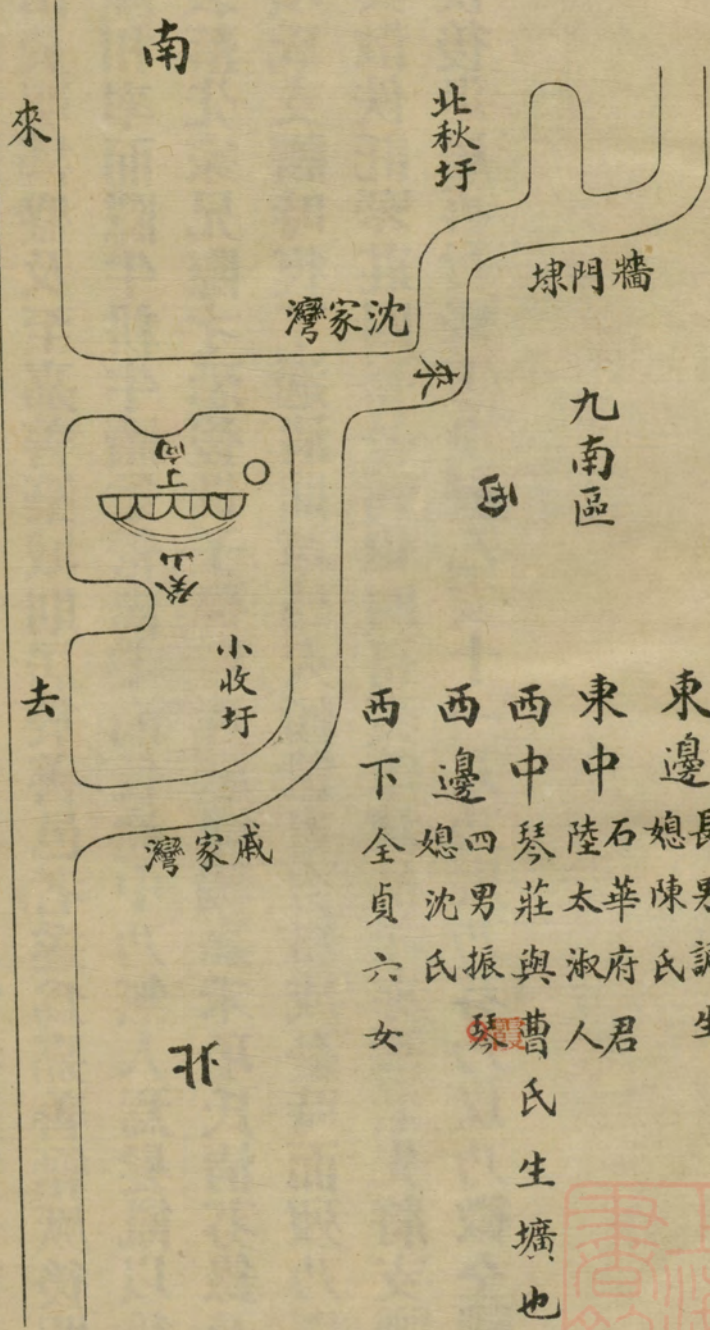 南
來
北秋圩
牆門埭
沈家灣
來
九南區
西
丁向
癸山
小收圩
去
戚家灣
北
東邊
長男
生
媳陳氏
東中
石華府君
陸太淑人
西中琴莊與曹氏生壙也
西邊
四男振琴
媳沈氏
西下全貞六女